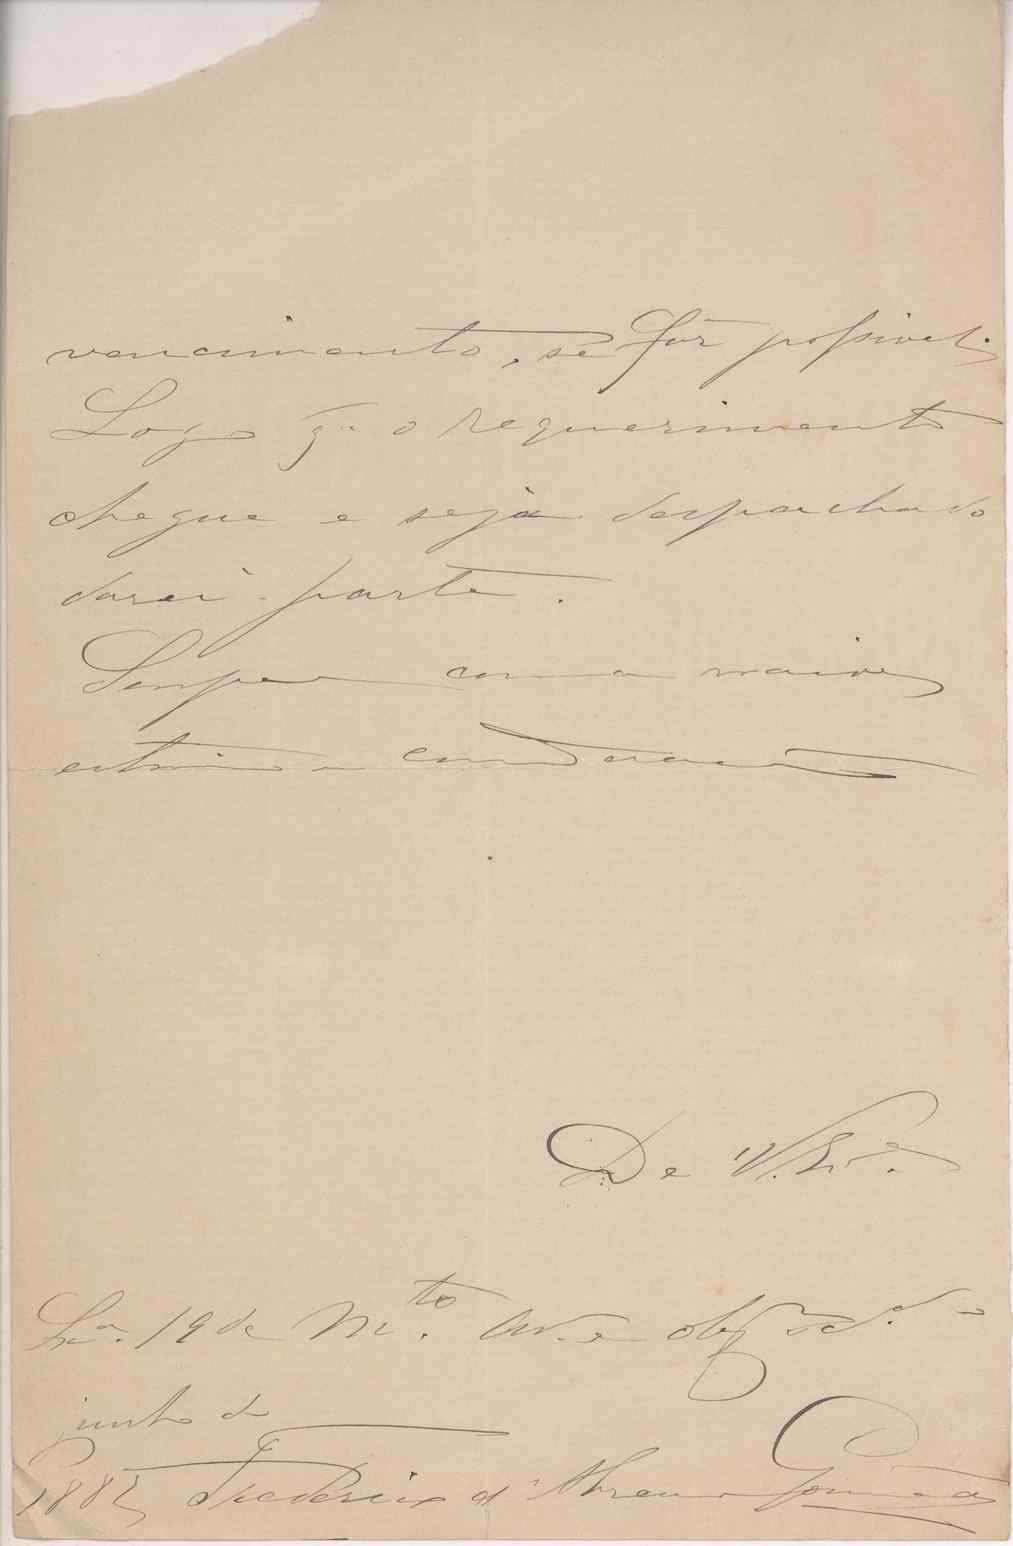 vencimento, se fôr possivel.
Logo q. o requerimento
chegue e seja despachado
darei parte.
Sempre com a maior
estima e consideração
De V. Ex.ª
Lx.ª 19 de M.to Am.o e obg.
junho de
1885 Frederico d'Abreu Gouvêa